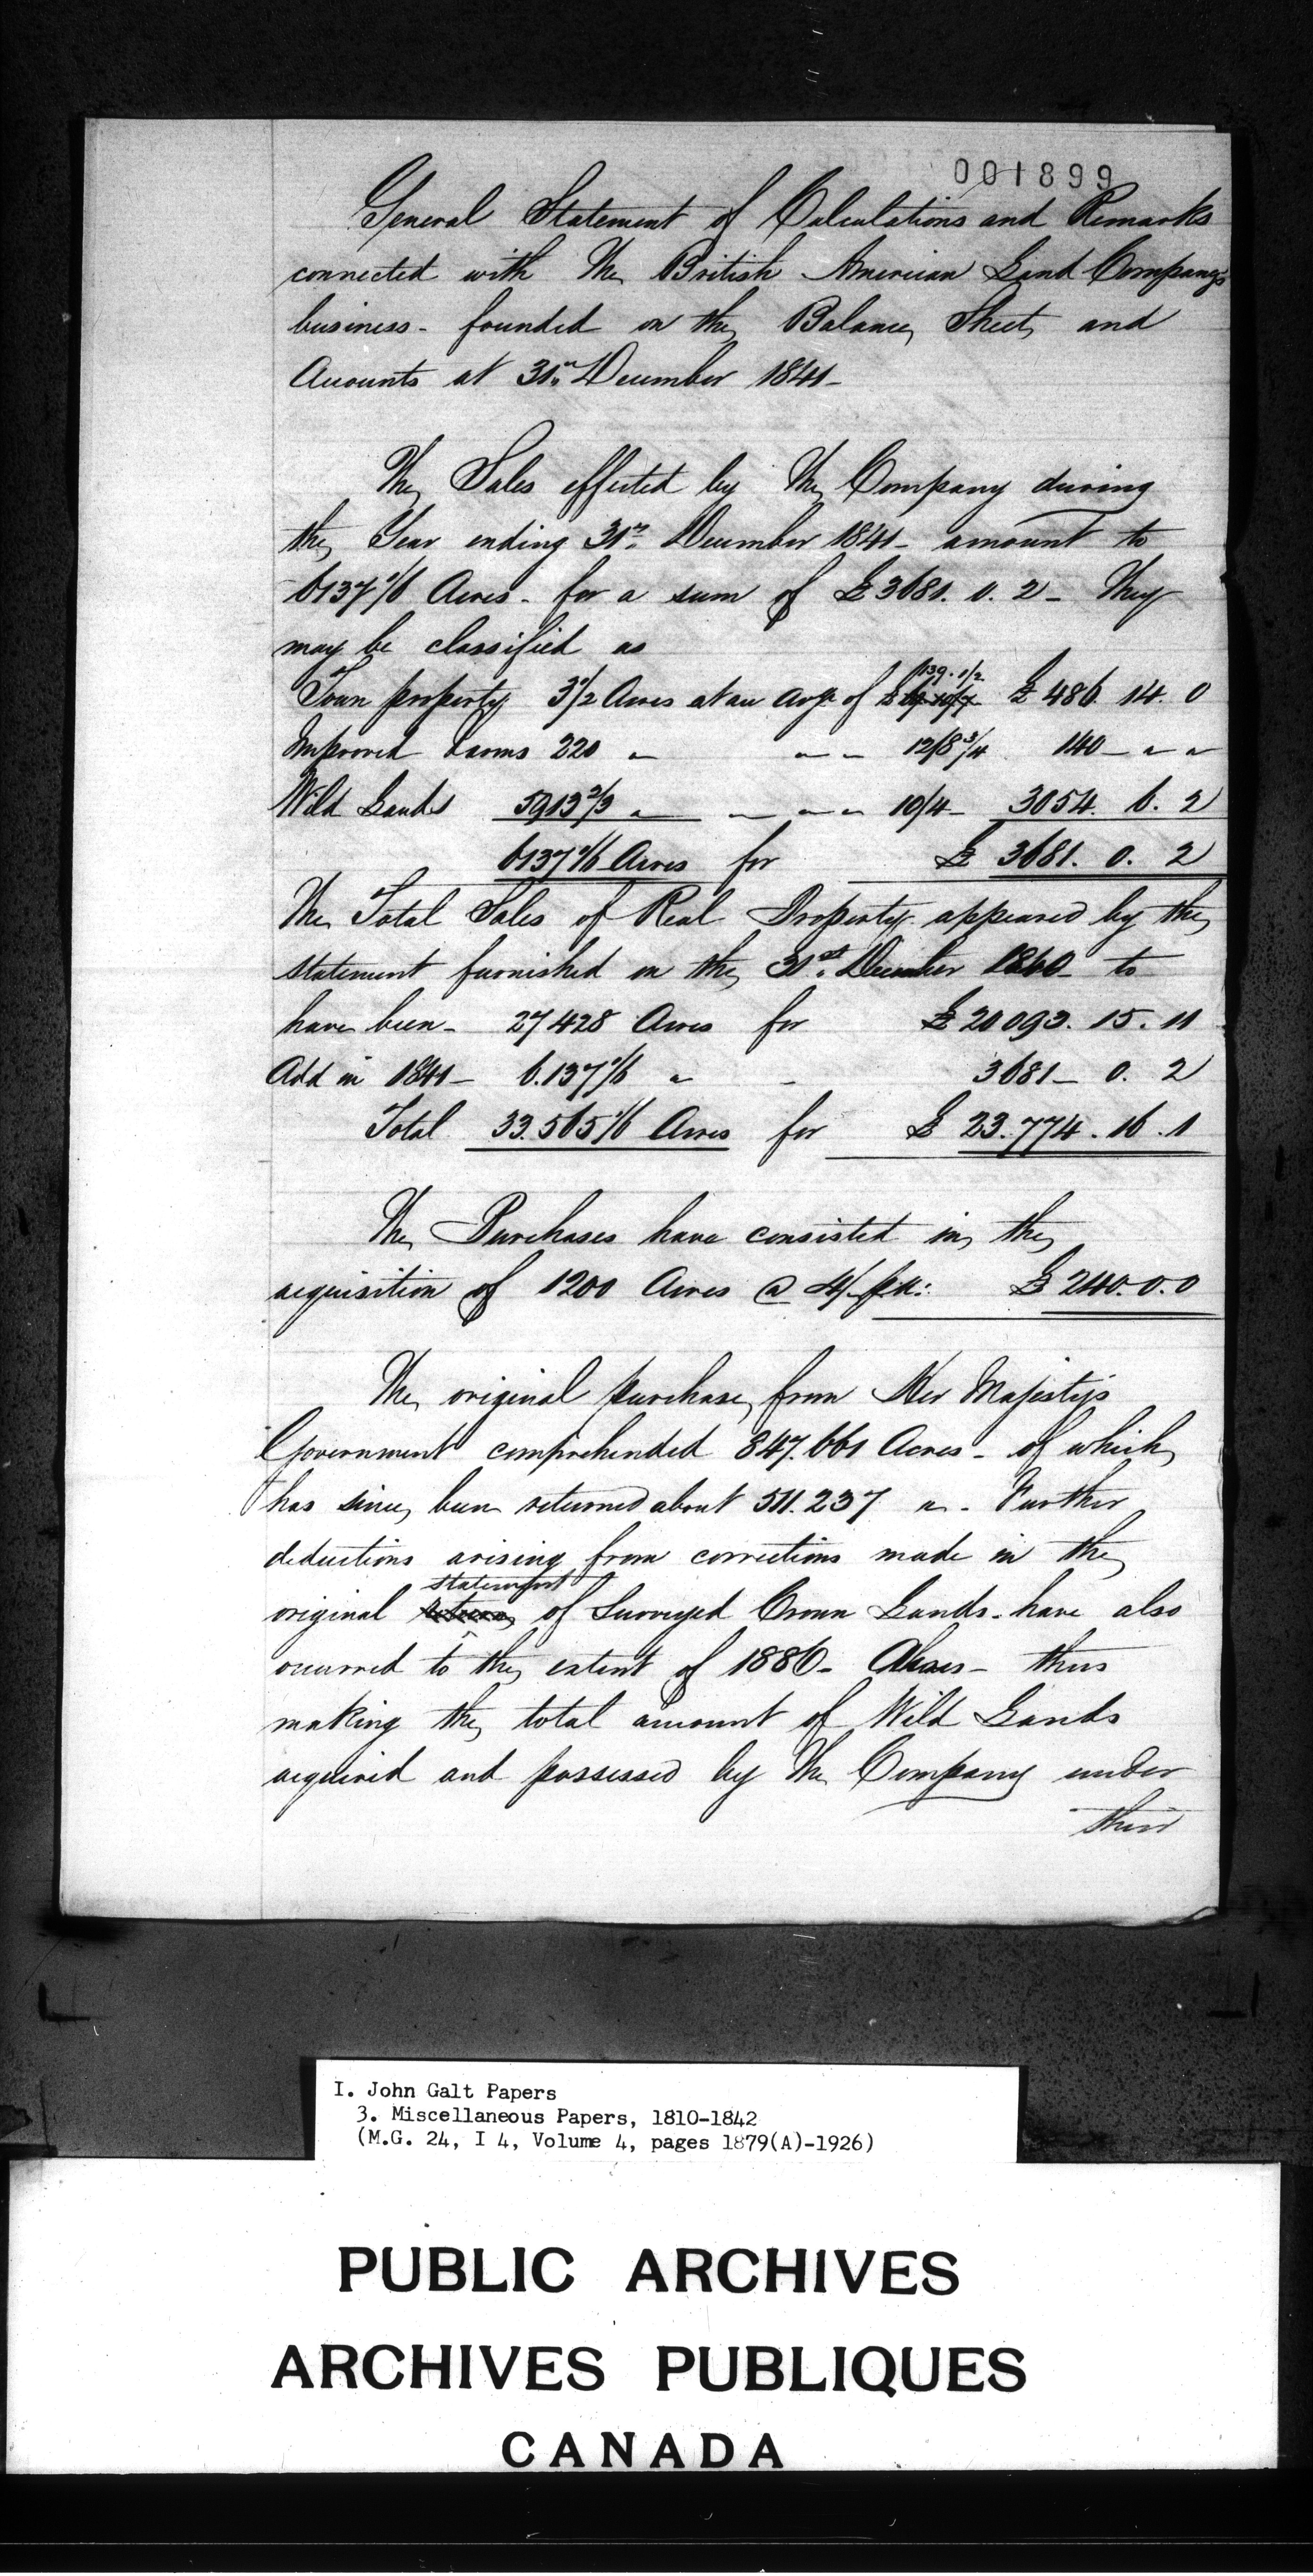 001899
General Statement of Calculations and Remarks
connected with The British American Land Company's
business - founded on the Balance Sheet and
Accounts at 31st December 1841 -
The Sales effected by The Company during
the Year ending 31st December 1841 - amount to
6137 1/6 Acres - for a sum of £3681. 0. 2 - They
may be classified as
Town property 3 1/2 Acres at an avge of £ 139. 1/2 £ 486. 14. 0
Improved Farms 220 " " " 12/8 3/4 140 - " "
Wild Lands 5913 2/3 " " " " 10/4 - 3054. 6. 2
6137 1/6 Acres for £ 3681. 0. 2
The Total Sales of Real Property appeared by the
statement furnished on the 31st December 1840 - to
have been - 27428 Acres for £ 20093. 15. 11
Add in 1841 - 6.137 1/6 " - 3681 - 0. 2
Total 33.565 1/6 Acres for £ 23.774. 16. 1
The Purchases have consisted in the
acquisition of 1200 Acres @ 4/ £240. 0. 0
The original purchase from Her Majesty's
Government comprehended 847.661 Acres - of which
has since been returned about 511.237 " - Further
deductions arising from corrections made in the
statement
original return of Surveyed Crown Lands - have also
occurred to the extent of 1886 - Acres - thus
making the total amount of Wild Lands
acquired and possessed by The Company under
their
I. John Galt Papers
3. Miscellaneous Papers, 1810-1842
(M.G. 24, I 4, Volume 4, pages 1879(A)-1926)
PUBLIC ARCHIVES
ARCHIVES PUBLIQUES
CANADA